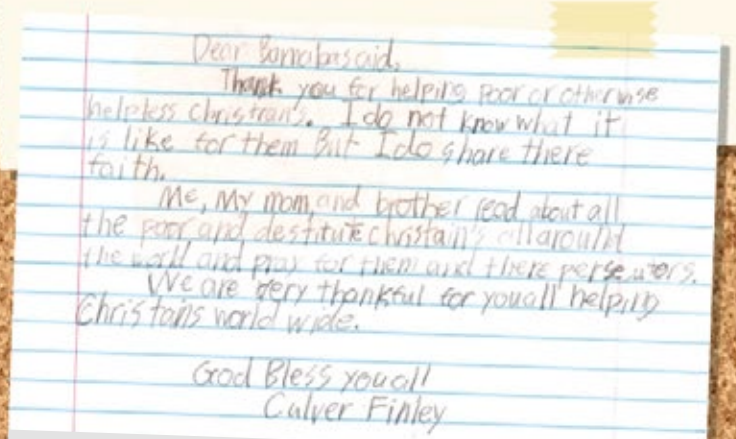 Dear Barnabasaid,
Thank you for helping poor or otherwise
helpless Christran's. I do not know what it
is like for them But I do share there
faith.
Me, My mom, and brother read about all
the poor and destitute christain's all around
the world and pray for them and there persecuters.
We are very thankful for you all helping
Christains world wide.
God Bless you all
Culver Finley